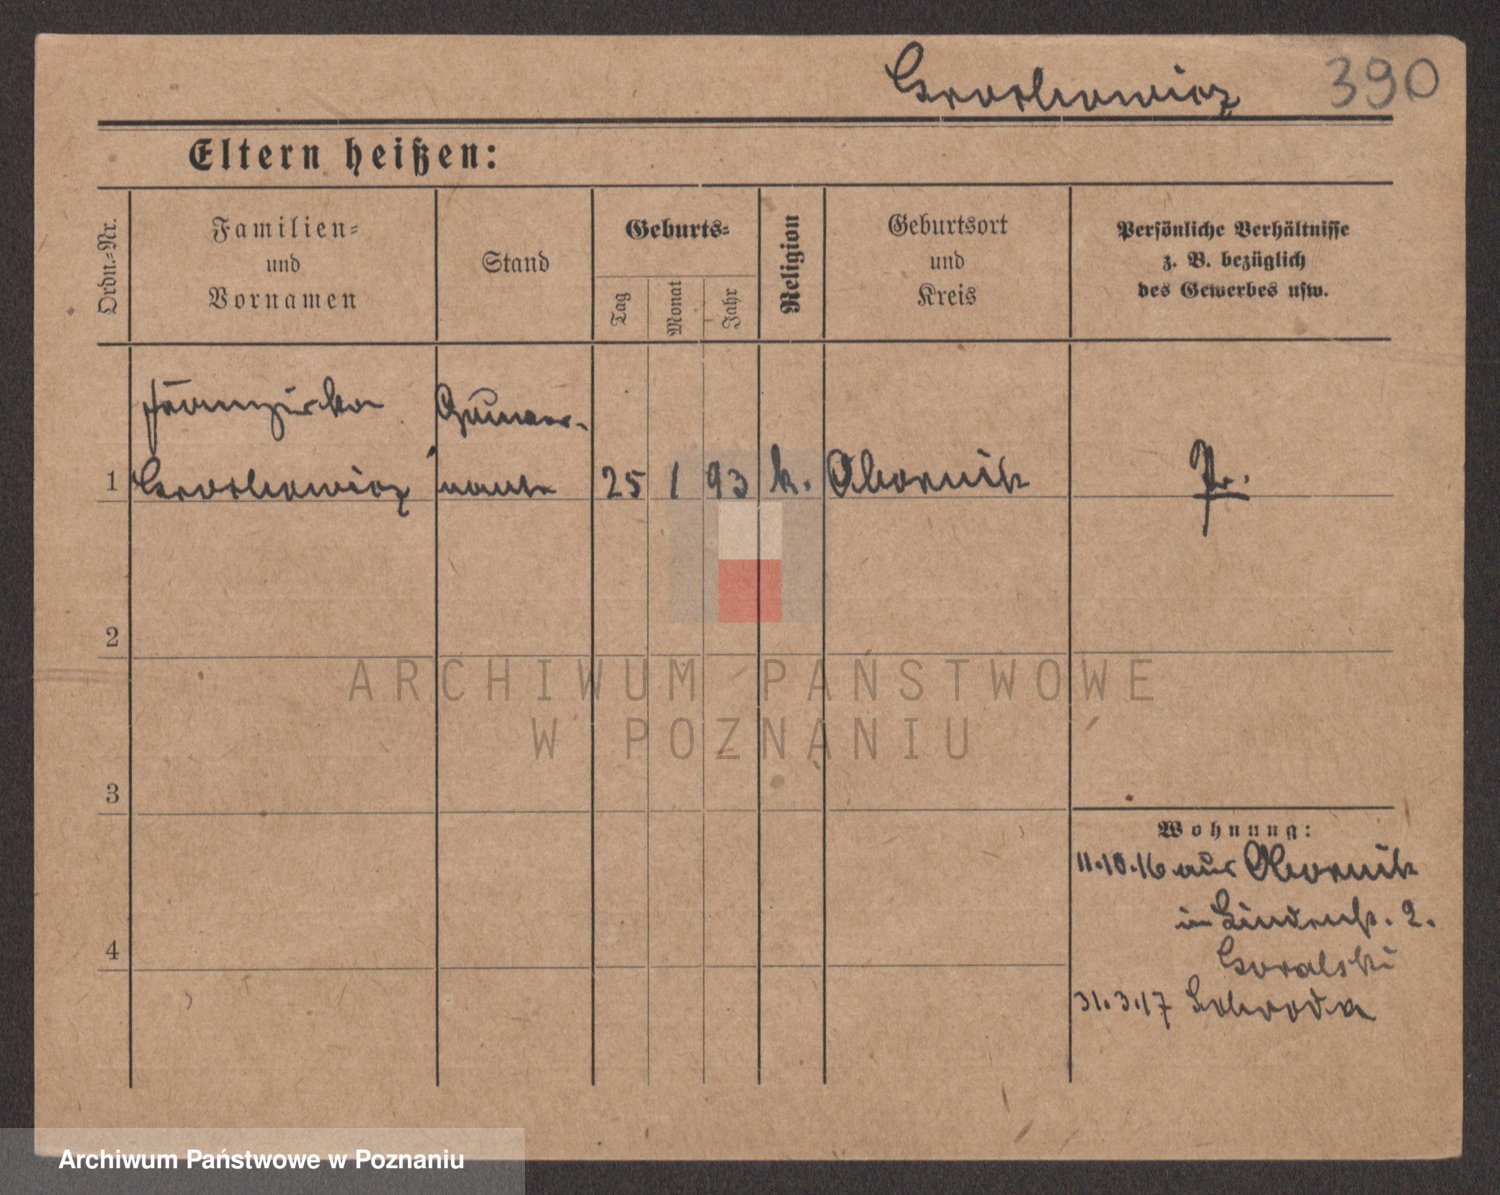 Grochowicz 390
Eltern heißen:
Ordn.-Nr.
Familien-
und
Vornamen
Stand
Geburts-
Tag
Monat
Jahr
Religion
Geburtsort
und
Kreis
Persönliche Verhältnisse
z. B. bezüglich
des Gewerbes usw.
Franziska
1 Grochowicz 25 1 93 k. Obornik Pr.
2
3
4
Wohnung:
11.10.16 aus Obornik
in Lindenstr. 2.
Goralski
31.3.17 Schroda
ARCHIWUM PAŃSTWOWE
W POZNANIU
Archiwum Państwowe w Poznaniu